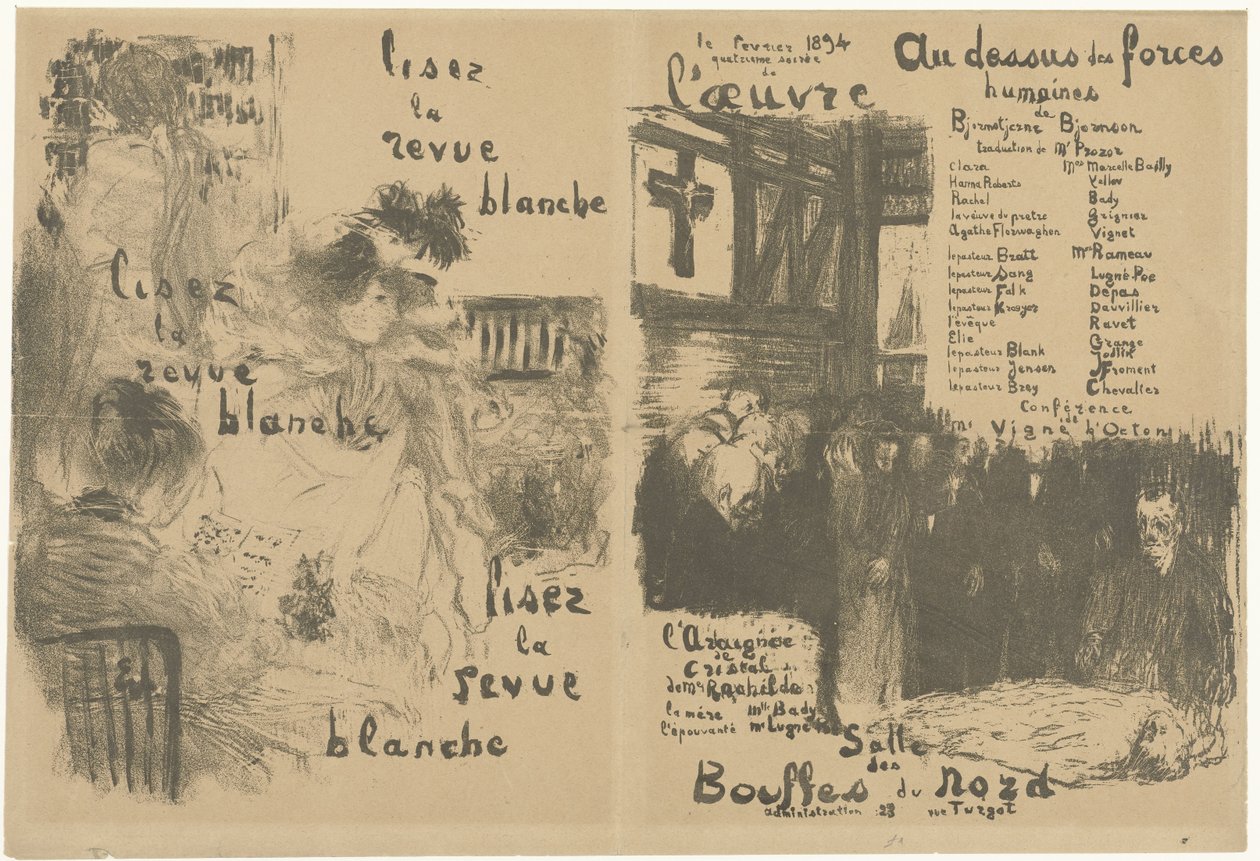 lisez
la
revue
blanche
lisez
la
revue
blanche
lisez
la
revue
blanche
le fevrier 1894
quatrieme soirée
de
l'œuvre
Au dessus des forces
humaines
de
Bjornstjerne Bjornson
traduction de Mr Prozor
Clara Mes Marcelle Bailly
Hanna Roberts
Rachel Bady
la veuve du pretre Grignier
Vignet
le pasteur Bratt Mrs Rameau
le pasteur Sang Lugné-Poe
le pasteur Falk Depas
le pasteur Dauvillier
l'évêque Ravet
Elie Grange
le pasteur Blank
le pasteur Jensen Froment
le pasteur Brey Chevalier
Conférence
de
Mr Vigné d'Octon
l'Araignée
de
Cristal
de Me Rachilde
la mère Mlle Bady
l'épouvanté Mr Lugné
Salle
des
Bouffes du Nord
administration 23 rue Turgot